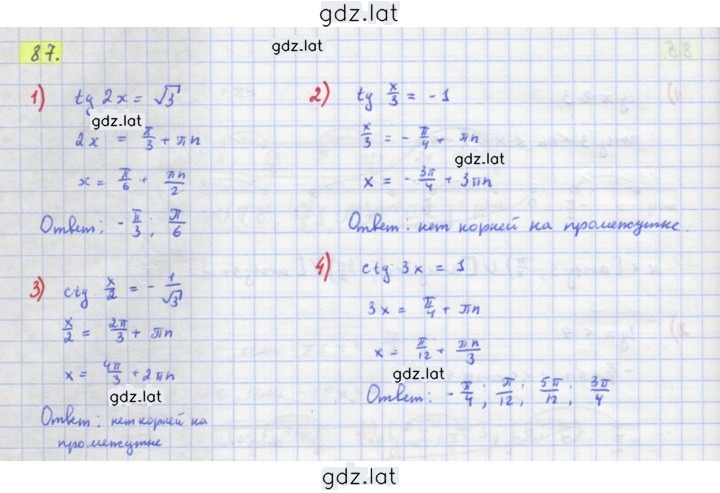 gdz.lat
gdz.lat
87.
1) tg 2x = √3
gdz.lat
2x = π/3 + πn
x = π/6 + πn/2
Ответ: -π/3; π/6
2) tg x/3 = -1
x/3 = -π/4 + πn
gdz.lat
x = -3π/4 + 3πn
Ответ: нет корней на промежутке.
3) ctg x/2 = -1/√3
x/2 = 2π/3 + πn
x = 4π/3 + 2πn
Ответ: нет корней на
промежутке
4) ctg 3x = 1
3x = π/4 + πn
x = π/12 + πn/3
gdz.lat
Ответ: -π/4; π/12; 5π/12; 3π/4
gdz.lat